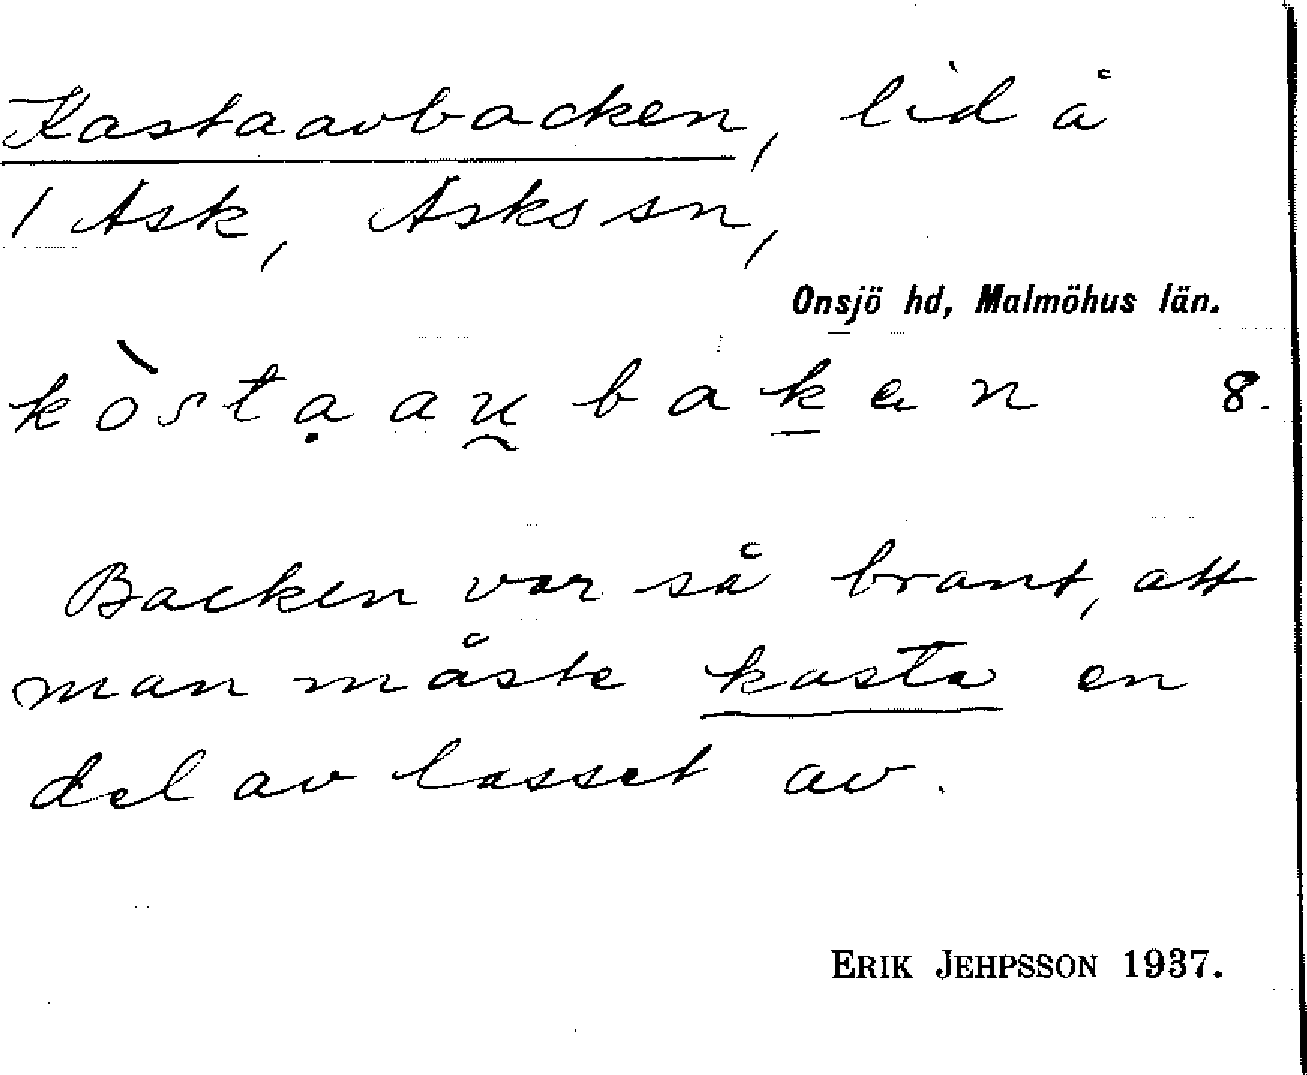 Kastaavbacken, lid å
1 Ask, Asks sn,
Onsjö hd, Malmöhus län.
kòstạau̯baḵen 8.
Backen var så brant, att
man måste kasta en
del av lasset av.
ERIK JEHPSSON 1937.